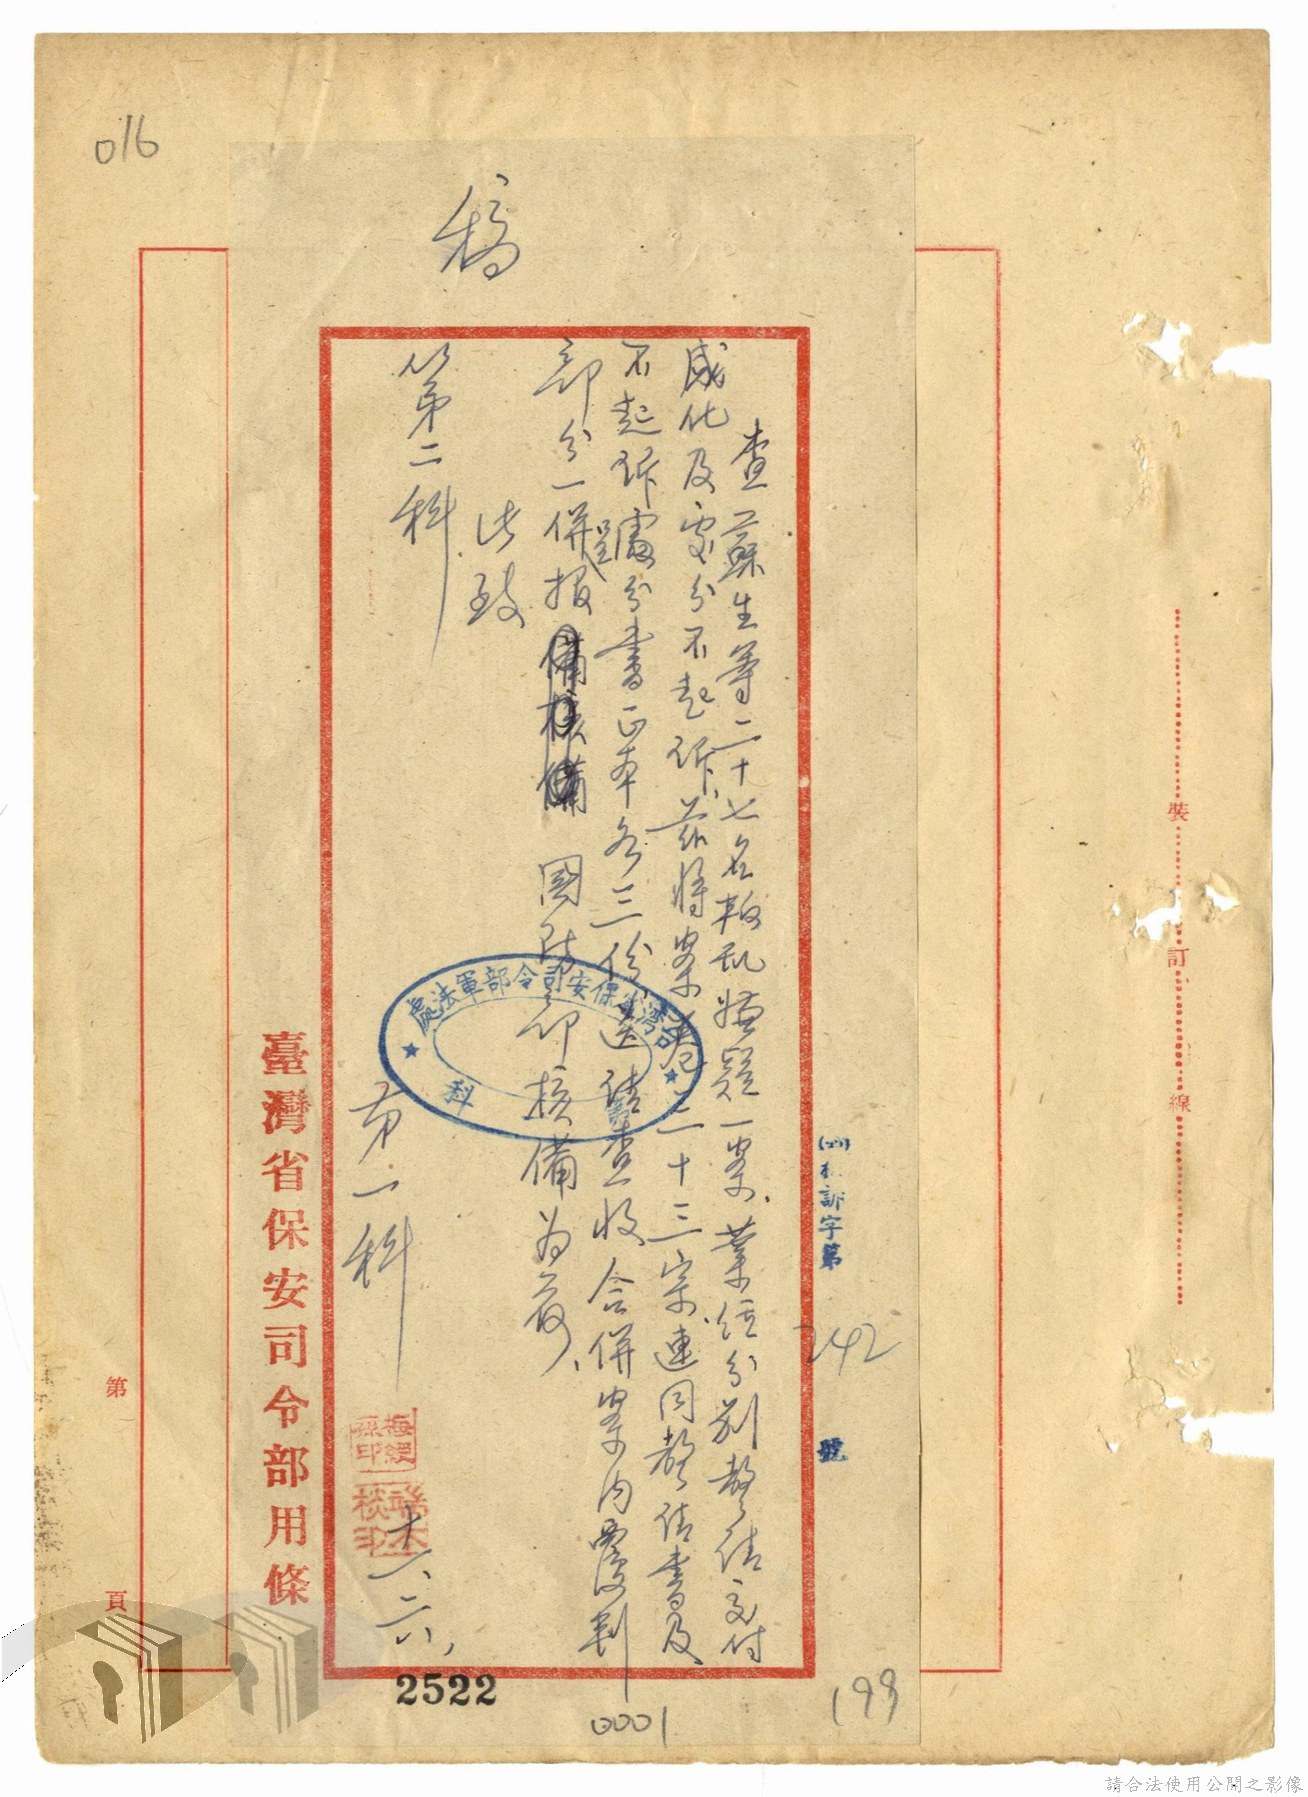 016
稿
查蘇生等二十七名叛亂嫌疑一案、業經分別聲請交付
感化及處分不起訴、茲將案卷二十三宗、連同聲請書及
不起訴處分書正本各三份送請查收、合併案內覆判
部分一併呈報 國防部核備为荷、
此致
第二科
第一科
十一、二六、
(四)
訴字第
242
號
台灣省保安司令部軍法處
科
臺灣省保安司令部用條
裝
訂
線
第
頁
2522
0001
199
請合法使用公開之影像